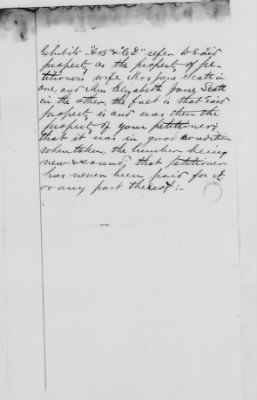 Exhibits "A B & "C D" refer to said
property as the property of pe-
titioner's wife Mrs Jane Scott in
one, and Mrs Elizabeth Jane Scott
in the other, the fact is that said
property is and was then the
property of your petitioner;
that it was in good condition
when taken, the lumber being
new & sound, that petitioner
has never been paid for it
or any part thereof:-